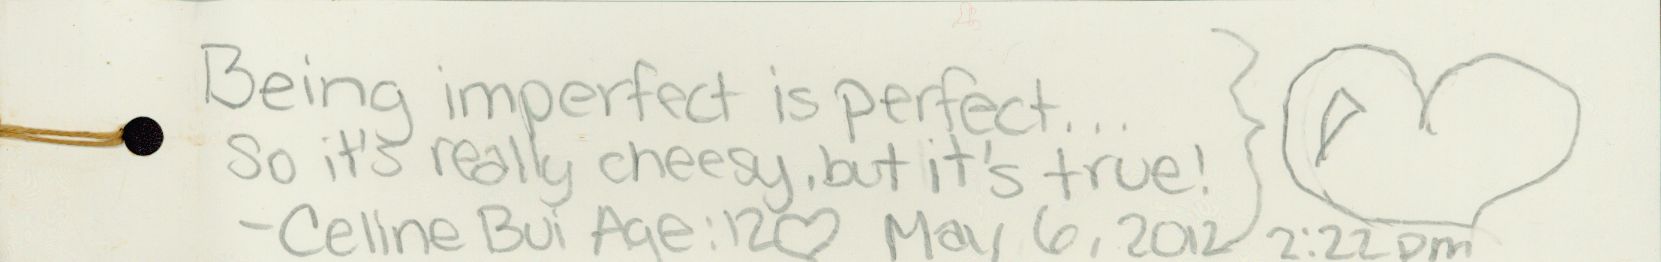 Being imperfect is perfect...
So it's really cheesy, but it's true!
-Celine Bui Age: 12♡ May 6, 2012 2:22 pm